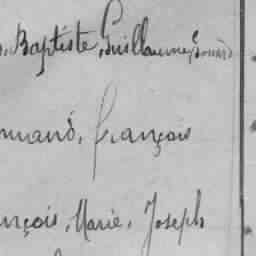 Baptiste, Guillaume, Louis
François
nçois, Marie, Joseph